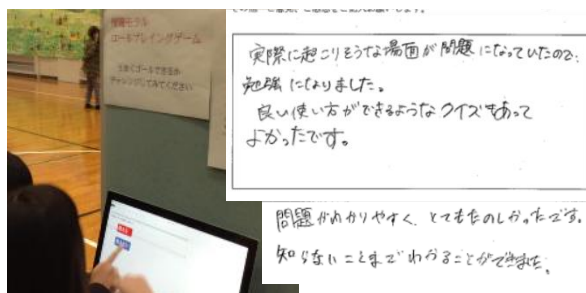 情報モラル
ロールプレイングゲーム
うまくゴールできるか
チャレンジしてみてください
実際に起こりそうな場面が問題になっていたので、
勉強になりました。
良い使い方ができるようなクイズもあって
よかったです。
問題がわかりやすく、とてもたのしかったです。
知らないことまでわかることができました。